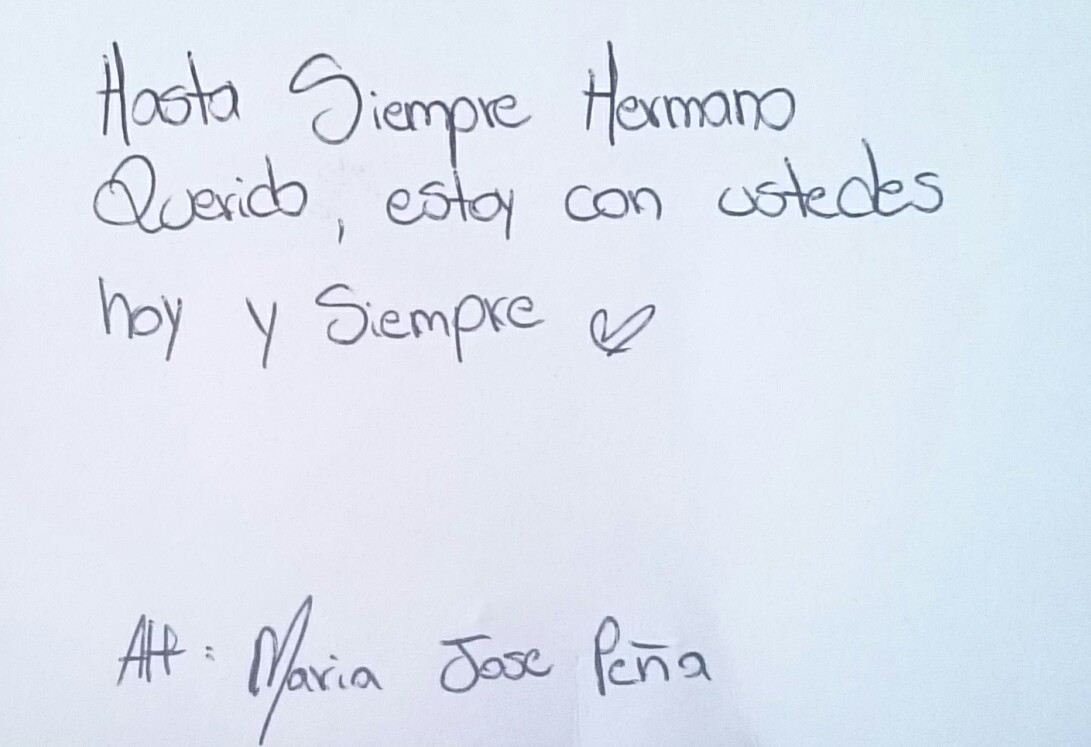 Hasta Siempre Hermano
Querido, estoy con ustedes
hoy y Siempre
Att: Maria Jose Peña